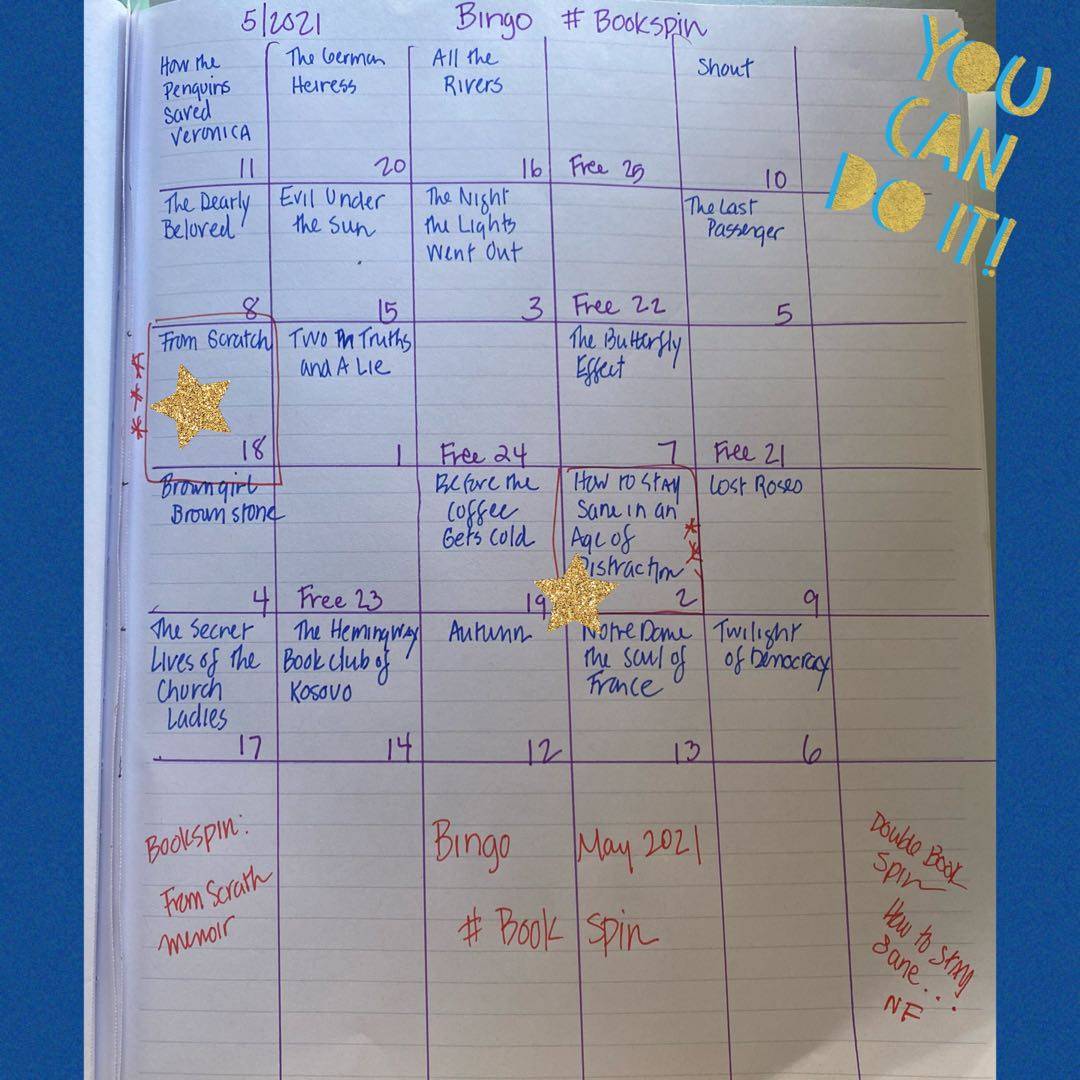 5/2021 Bingo # Bookspin
YOU
CAN
DO IT!
How the
Penguins
Saved
Veronica
11
The German
Heiress
20
All the
Rivers
16
Free 25
Shout
10
The Dearly
Beloved
8
Evil Under
the Sun
15
The Night
the Lights
Went Out
3
Free 22
The Last
Passenger
5
From Scratch
18
Two Truths
and A Lie
1
Free 24
The Butterfly
Effect
7
Free 21
Browngirl
Brownstone
4
Free 23
Before the
Coffee
Gets Cold
19
How to Stay
Sane in an
Age of
Distraction
2
Lost Roses
9
The Secret
Lives of the
Church
Ladies
17
The Hemingway
Book club of
Kosovo
14
Autumn
12
Notre Dame
the Soul of
France
13
Twilight
of Democracy
6
Bookspin:
From Scrath
memoir
Bingo May 2021
# Book Spin
Double Book
Spin
How to Stay
Sane...
NF